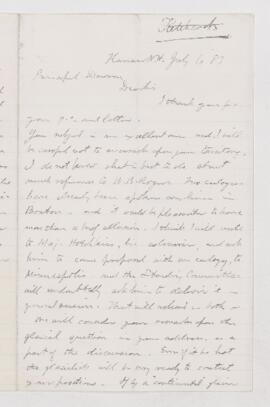 Hanover N.H. July 6 83
Principal Dawson
Dear Sir
I thank you for
your p.c. and letter.
Your subject is an excellent one and I will
be careful not to encroach upon your territory.
I do not know what is best to do about
much reference to W. B. Rogers. Two eulogies
have already been spoken in
Boston – and it would be pleasanter to have
more than a brief allusion. I think I will write
to Maj. Hotchkiss, his and ask
him to come prepared with an eulogy, to
Minneapolis – and the Standing Committee
will undoubtedly ask him to deliver it in
general session. That will relieve us both –
We will consider your remarks upon the
glacial question in your address, as a
part of the discussion. Even if it be hot
the glacialists will be very ready to contest
your positions. If by a "continental glacier